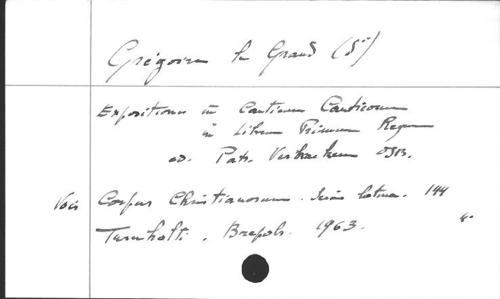 Grégoire le Grand (St)
Expositiones in Canticum Canticorum
in Librum Primum Regum
ed. Patr. Verbraken OSB.
Voir Corpus Christianorum. Series latina. 144
Turnholti, Brepols. 1963.